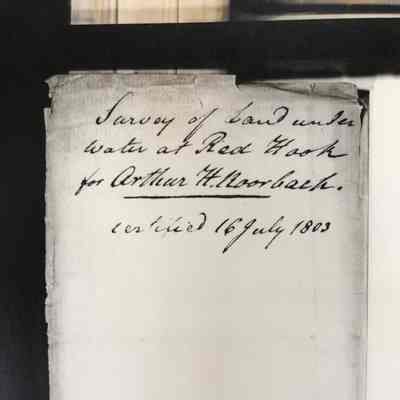 Survey of Land under
water at Red Hook
for Arthur H. Noorback.
certified 16 July 1803